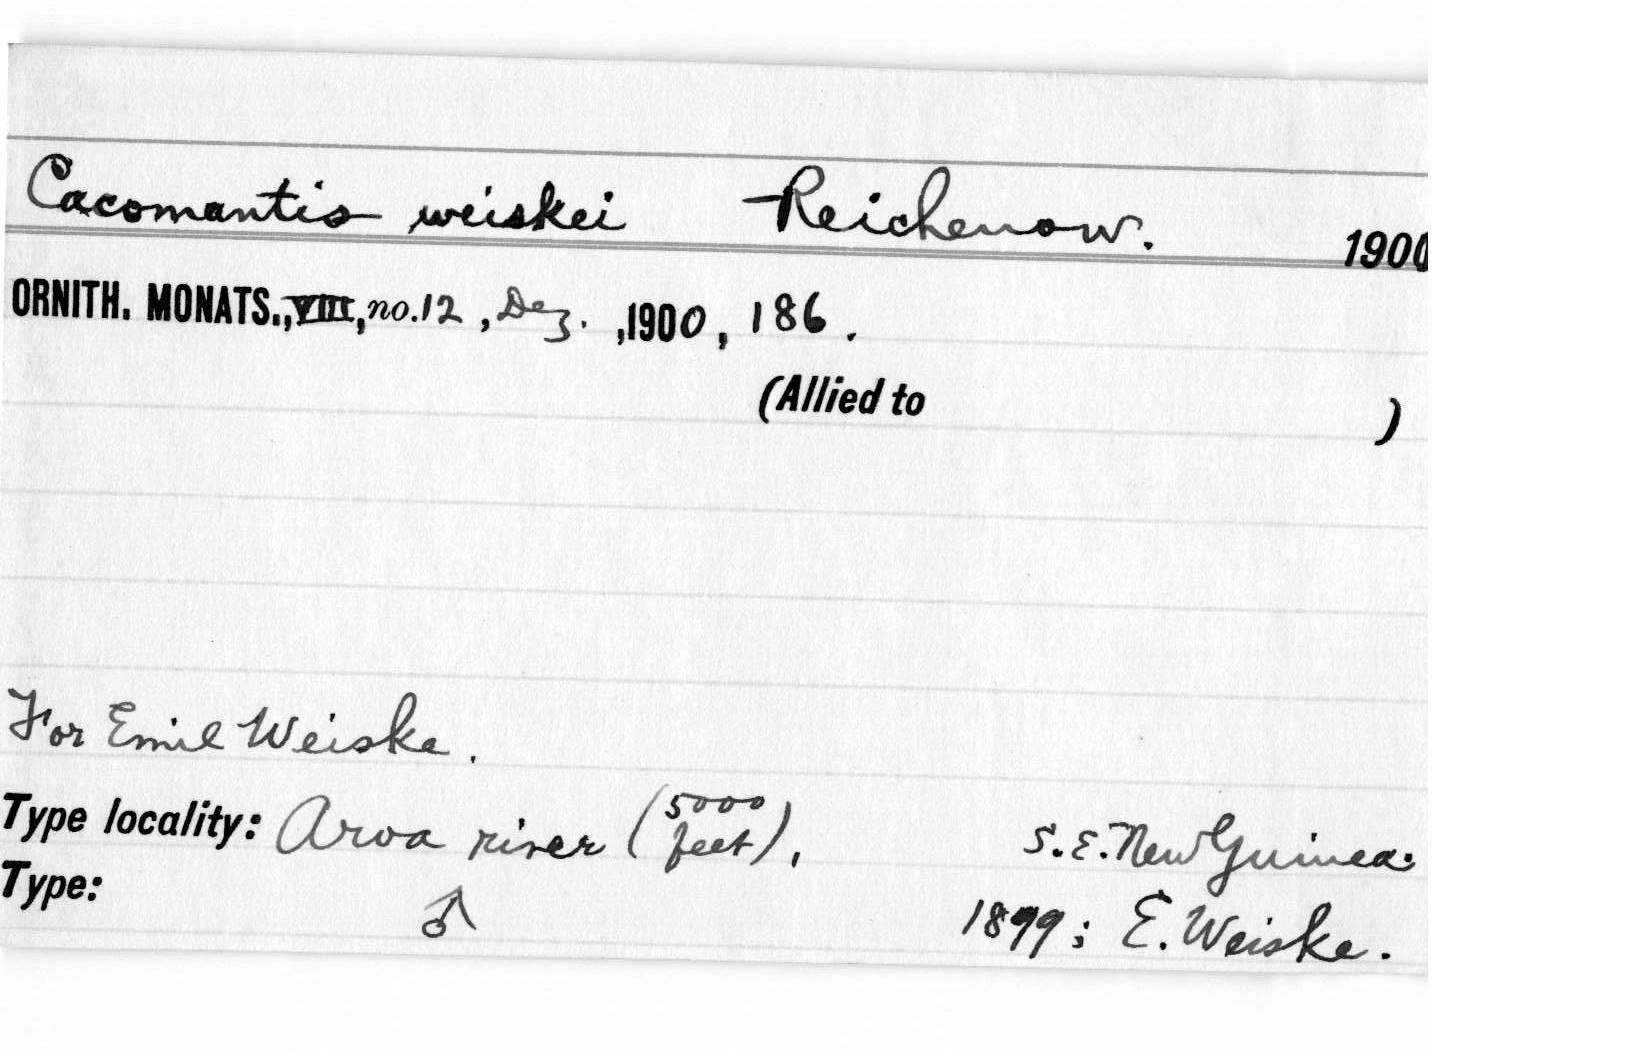 Cacomantis weiskei Reichenow. 1900
ORNITH. MONATS., VIII, no. 12, Dez. ,1900, 186.
(Allied to )
For Emil Weiske.
Type locality: Aroa river (5000 feet), S.E. New Guinea.
Type: ♂ 1899; E. Weiske.